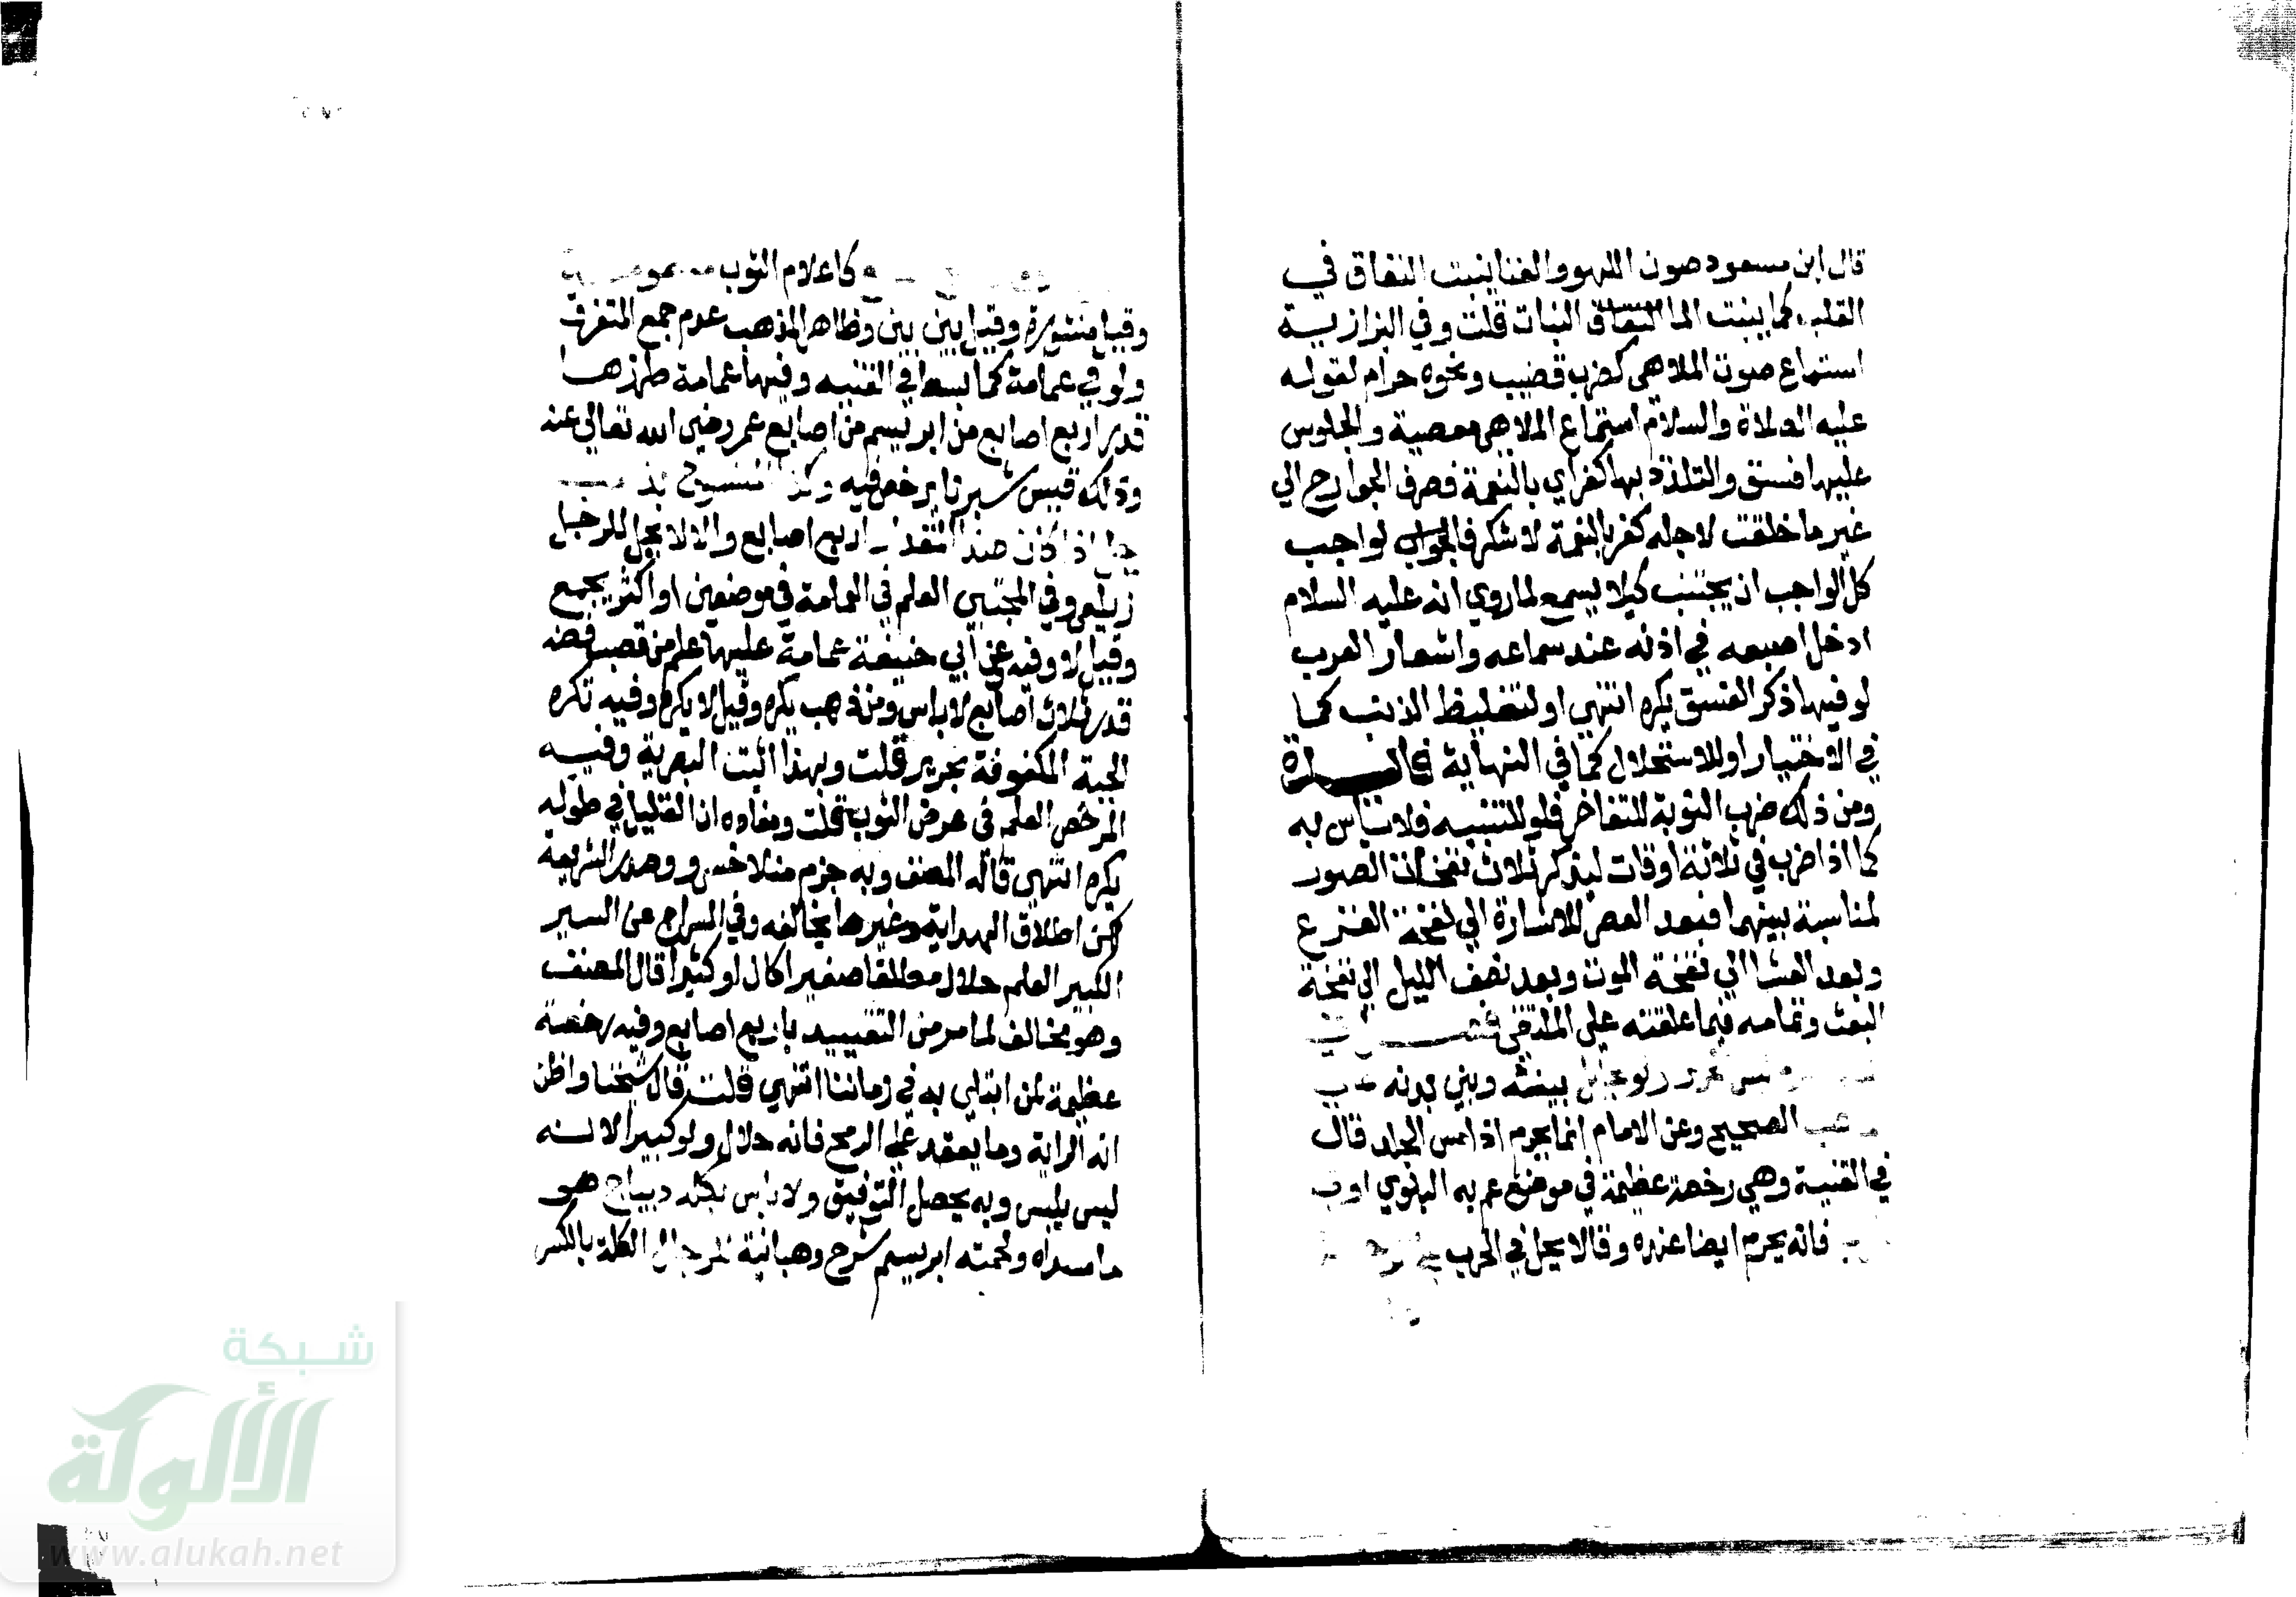 قال ابن مسعود صوت اللهو والغنا ينبت النفاق في
القلب كما ينبت الما النبات قلت وفي البزازية
استماع صوت الملاهي كضرب قضيب ونحوه حرام لقوله
عليه الصلاة والسلام استماع الملاهي معصية والجلوس
عليها فسق والتلذذ بها كفر اي بالنعمة فصرف الجوارح الي
غير ما خلقت لاجله كفر بالنعمة لا شكر فالواجب
كل الواجب ان يجتنب كيلا يسمع لما روي انه عليه السلام
ادخل اصبعه في اذنه عند سماعه واشعار العرب
لو فيها ذكر الفسق يكره انتهي او لتغليظ الذنب كما
في الاختيار او للاستحلال كما في النهاية فايدة
ومن ذلك ضرب النوبة للتفاخر فلو للتنبيه فلا باس به
كما اذا ضرب في ثلاثة اوقات ليذكر ثلاث نفخات الصور
لمناسبة بينهما فبعد العصر للاشارة الي نفخة الفزع
وبعد العشا الي نفخة الموت وبعد نصف الليل الي نفخة
البعث وتمامه فيما علقته علي الملتقي
ولو بحائل بينه وبين بدنه
الصحيح وعن الامام انما يحرم اذا مس الجلد قال
في القنية وهي رخصة عظيمة في موضع عم به البلوي
فانه يحرم ايضا عنده وقالا يحل في الحرب
كاعلام الثوب
وقيل منشورة وقيل بين بين وظاهر المذهب عدم جمع المتفرق
ولو في عمامة كما بسط في القنيه وفيها عمامة طرزها
قدر اربع اصابع من ابريسم من اصابع عمر رضي الله تعالي عنه
وذلك قيس شبرنا يرخص فيه وكذا المنسوج
يحل اذا كان هذا المقدار اربع اصابع والا لا يحل للرجل
زيلعي وفي المجتبي العلم في العمامة في موضعين او اكثر يجمع
وقيل لا وفيه عن ابي حنيفة عمامة عليها علم من قصب فضه
قدر ثلاث اصابع لا باس ومن ذهب يكره وقيل لا يكره وفيه تكره
الجبة المكفوفة بحرير قلت وبهذا اثبت البعريه وفيه
المرخص العلم في عرض الثوب قلت ومفاده ان القليل في طوله
يكره انتهي قاله المصنف وبه جزم منلا خسرو وصدر الشريعة
لكن اطلاق الهداية وغيرها يخالفه وفي السراج عن السير
الكبير العلم حلال مطلقا صغيرا كان او كثيرا قال المصنف
وهو مخالف لما مر من التقييد باربع اصابع وفيه رخصة
عظيمة لمن ابتلي به في زماننا انتهي قلت قال شيخنا واظن
انه الراية وما يعقد علي الرمح فانه حلال ولو كبيرا لانه
ليس بلبس وبه يحصل التوفيق ولا باس بكلة ديباج هو
ما سداه ولحمته ابريسم شرح وهبانية للرجال الكلة بالكسر
شبكة
الألوكة
www.alukah.net